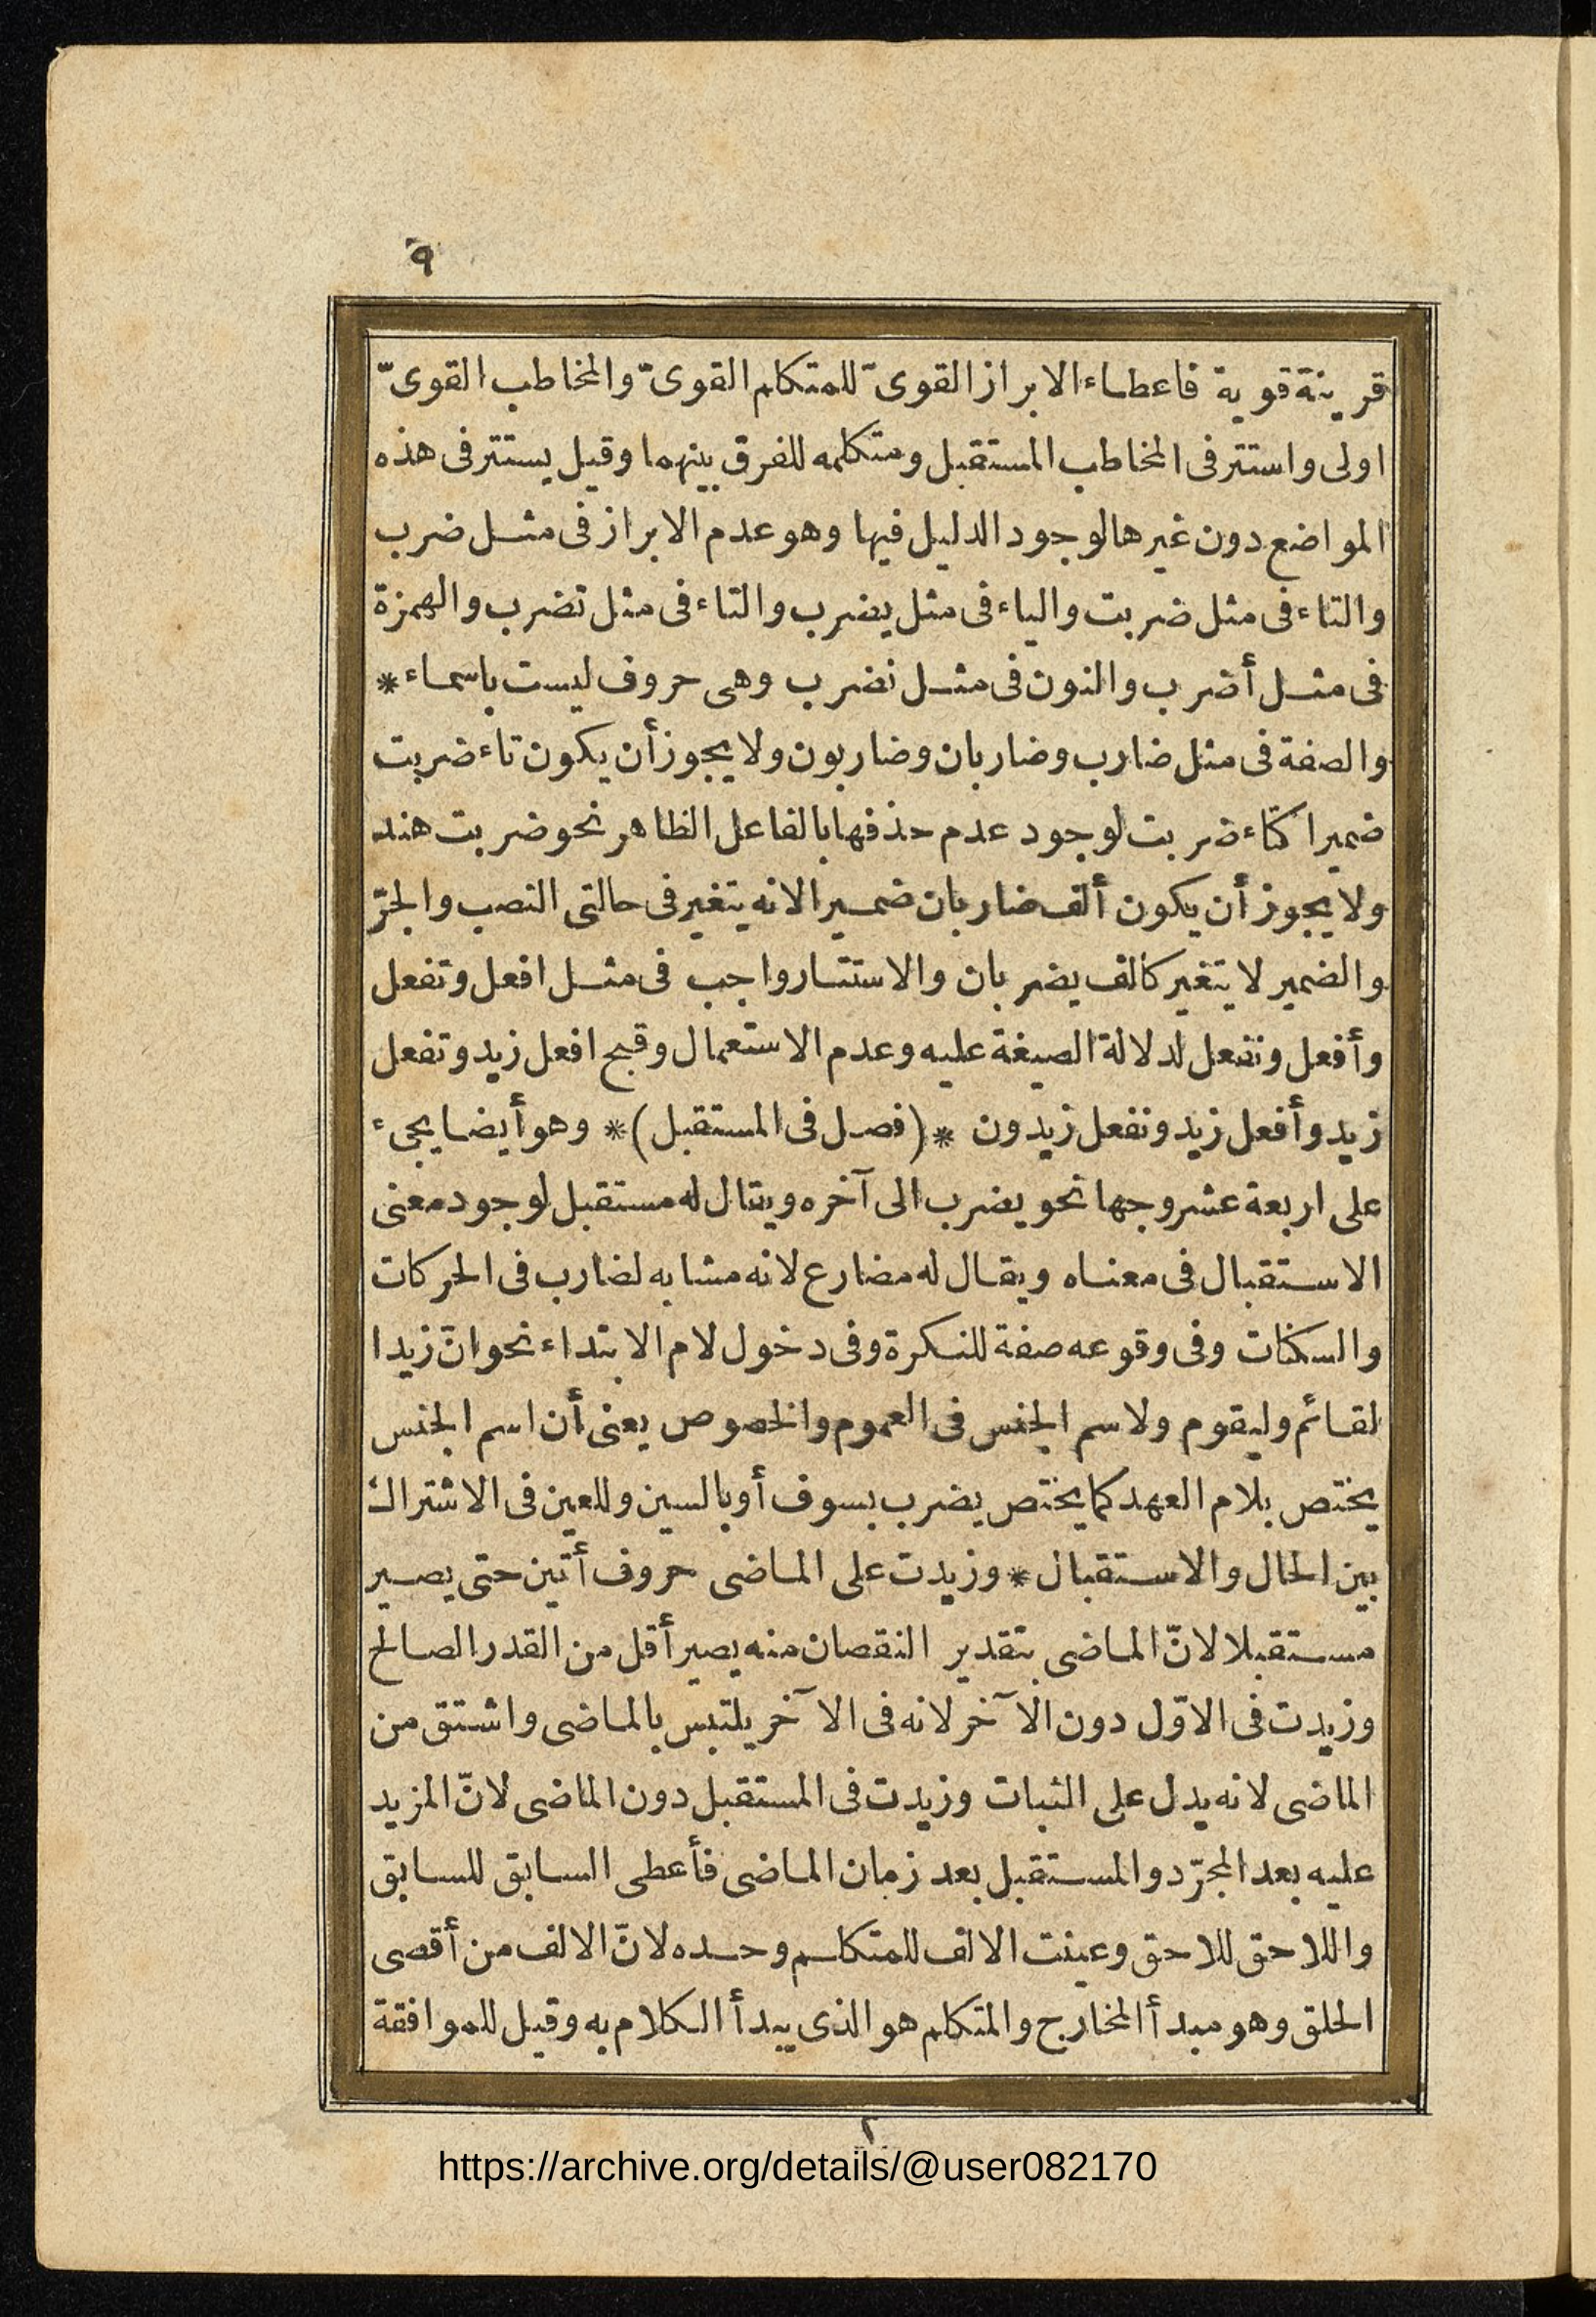 ٩
قرينة قوية فاعطاء الابراز القوىّ للمتكلم القوىّ والمخاطب القوىّ
اولى واستتر فى المخاطب المستقبل ومتكلمه للفرق بينهما وقيل يستتر فى هذه
المواضع دون غيرها لوجود الدليل فيها وهو عدم الابراز فى مثل ضرب
والتاء فى مثل ضربت والياء فى مثل يضرب والتاء فى مثل تضرب والهمزة
فى مثل أضرب والنون فى مثل نضرب وهى حروف ليست باسماء *
والصفة فى مثل ضارب وضاربان وضاربون ولا يجوز أن يكون تاء ضربت
ضميرا كتاء ضربت لوجود عدم حذفها بالفاعل الظاهر نحو ضربت هند
ولا يجوز أن يكون ألف ضاربان ضميرا لانه يتغير فى حالتى النصب والجرّ
والضمير لا يتغير كالف يضربان والاستتار واجب فى مثل افعل وتفعل
وأفعل ونفعل لدلالة الصيغة عليه وعدم الاستعمال وقبح افعل زيد وتفعل
زيد وأفعل زيد ونفعل زيدون * (فصل فى المستقبل) * وهو أيضا يجىء
على اربعة عشر وجها نحو يضرب الى آخره ويقال له مستقبل لوجود معنى
الاستقبال فى معناه ويقال له مضارع لانه مشابه لضارب فى الحركات
والسكنات وفى وقوعه صفة للنكرة وفى دخول لام الابتداء نحو انّ زيدا
لقائم وليقوم ولاسم الجنس فى العموم والخصوص يعنى أن اسم الجنس
يختص بلام العهد كما يختص يضرب بسوف أو بالسين وللعين فى الاشتراك
بين الحال والاستقبال * وزيدت على الماضى حروف أتين حتى يصير
مستقبلا لانّ الماضى بتقدير النقصان منه يصير أقل من القدر الصالح
وزيدت فى الاوّل دون الآخر لانه فى الآخر يلتبس بالماضى واشتق من
الماضى لانه يدل على الثبات وزيدت فى المستقبل دون الماضى لانّ المزيد
عليه بعد المجرّد والمستقبل بعد زمان الماضى فأعطى السابق للسابق
واللاحق للاحق وعينت الالف للمتكلم وحده لانّ الالف من أقصى
الحلق وهو مبدأ المخارج والمتكلم هو الذى يبدأ الكلام به وقيل للموافقة
٢
https://archive.org/details/@user082170